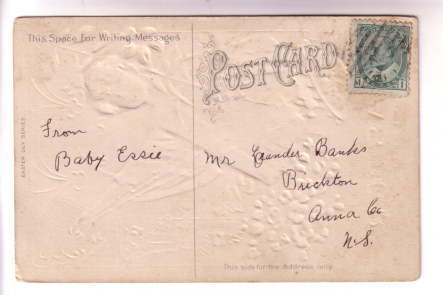 This Space for Writing Messages
POST CARD
EASTER DAY SERIES
From
Baby Essie
Mr Evander Banks
Brickton
Anna Co
N.S.
This side for the Address only